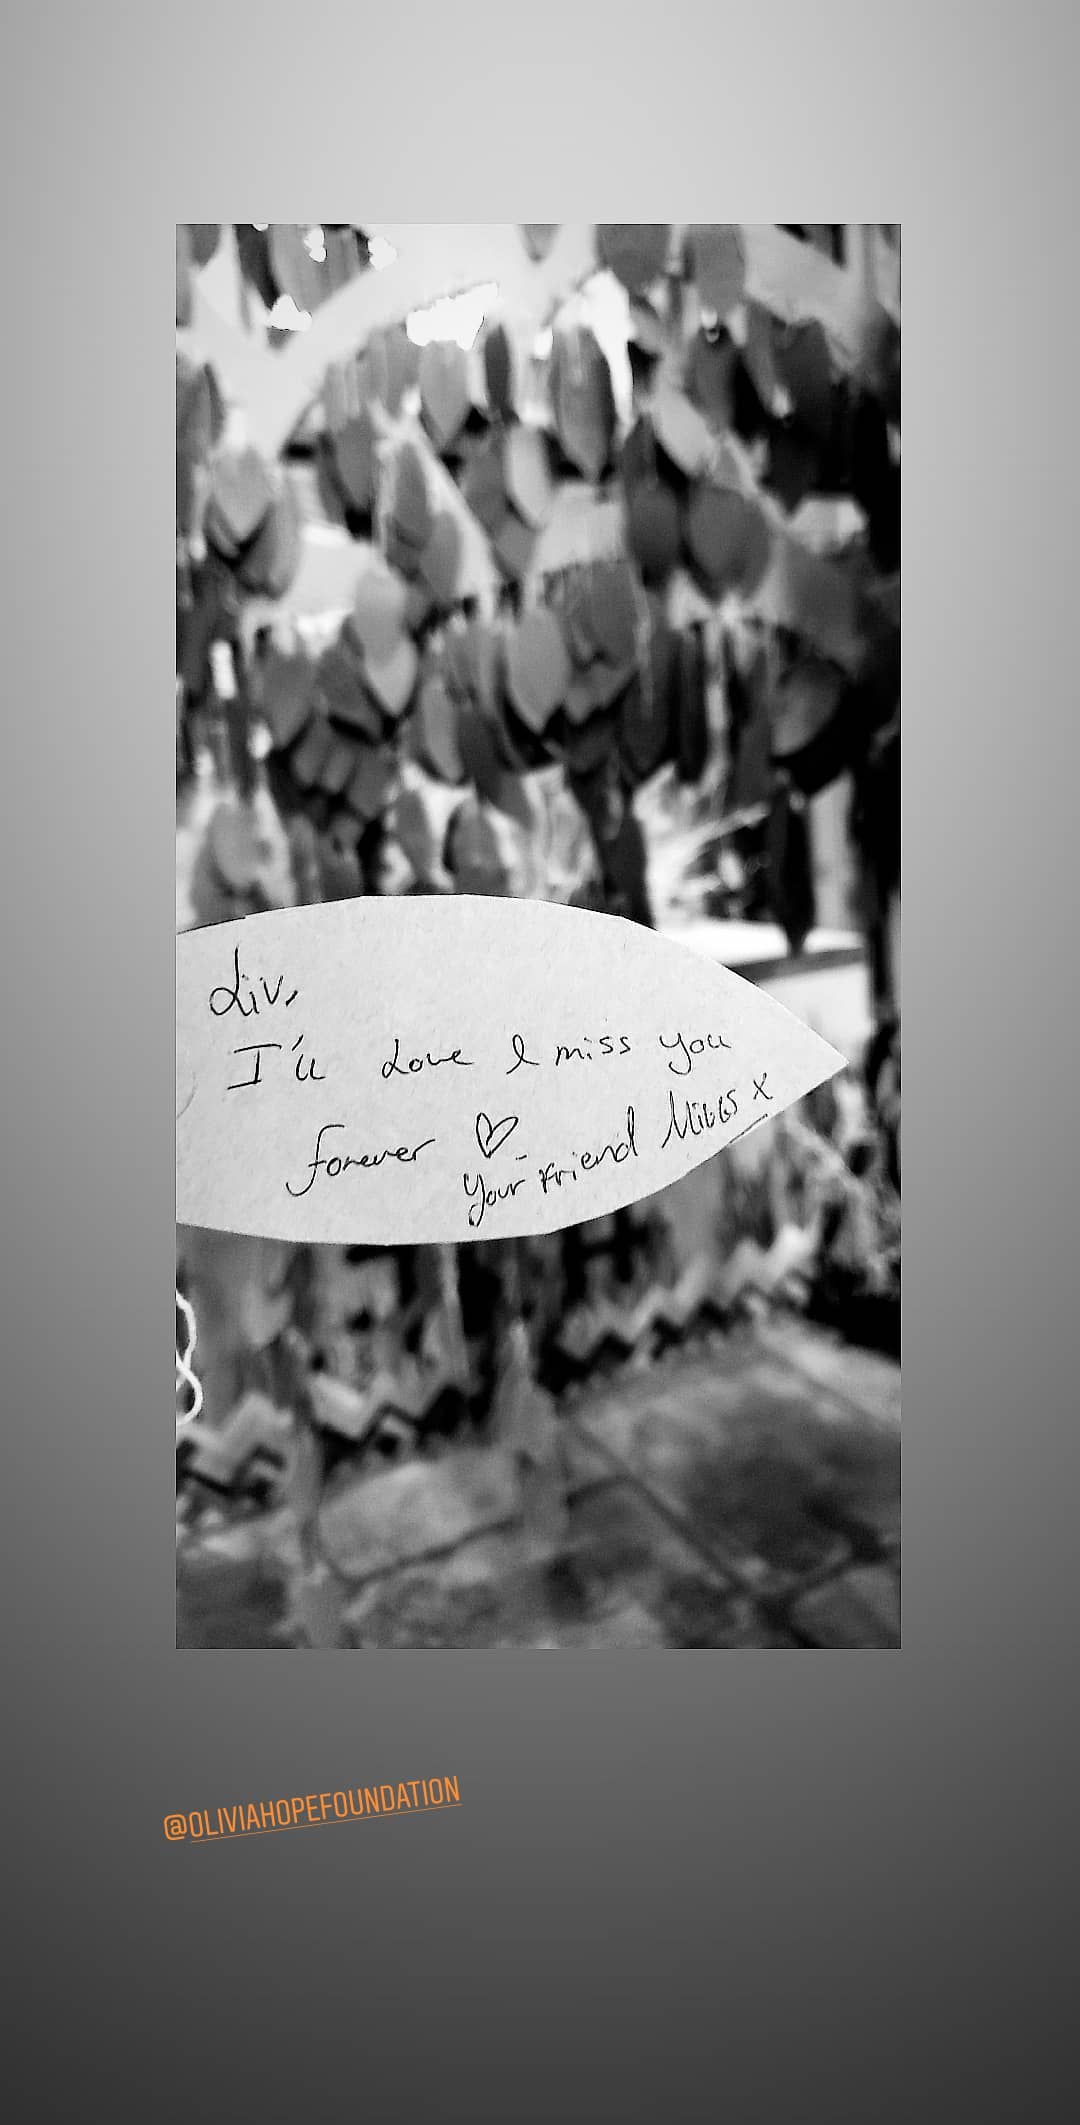 Liv,
I'll Love & miss you
forever ♡
Your Friend Mibbs x
@OLIVIAHOPEFOUNDATION